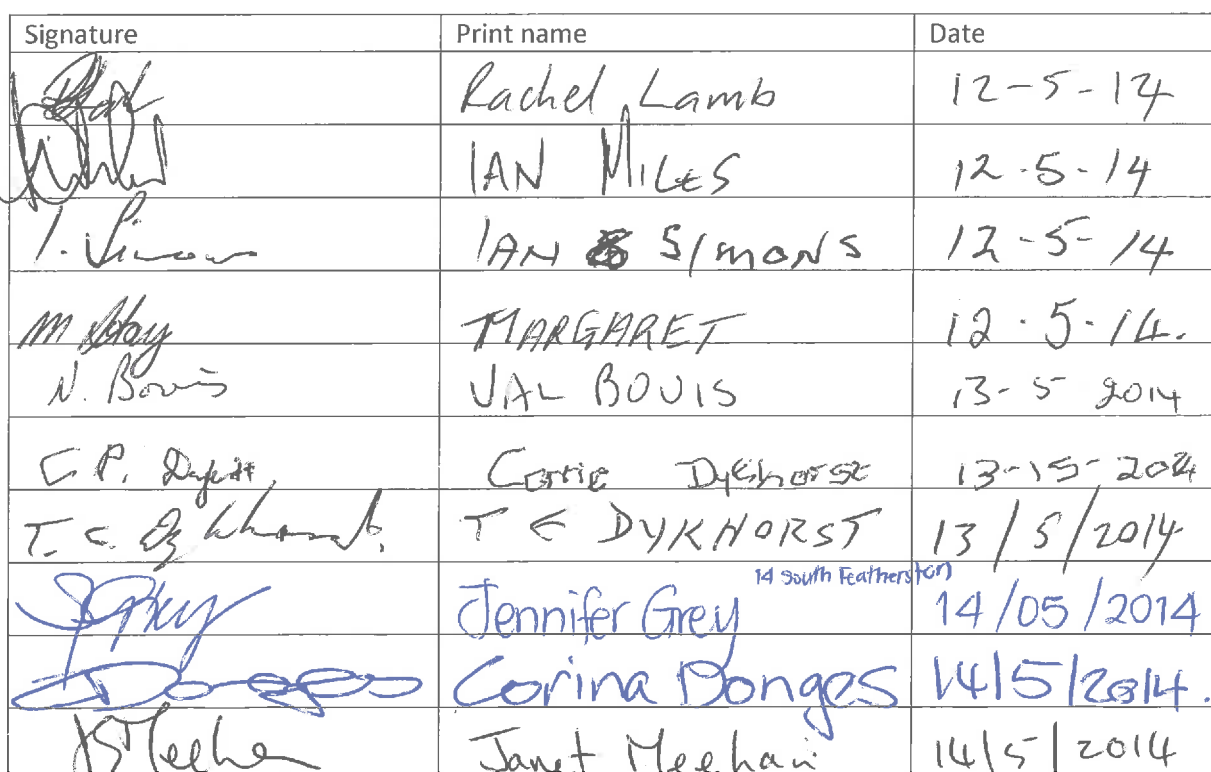 Signature Print name Date
Rachel Lamb 12-5-14
IAN MILES 12-5-14
I. Simons IAN SIMONS 12-5-14
M MARGARET 12.5.14.
N. Bovis VAL BOVIS 13-5 2014
C P. Corrie Dykhorst 13-15-2014
T. C. Dykhorst. T C DYKHORST 13/5/2014
14 South Featherston
JGrey Jennifer Grey 14/05/2014
Donges Corina Donges 14/5/2014.
JSMeehan Janet Meehan 14/5/2014